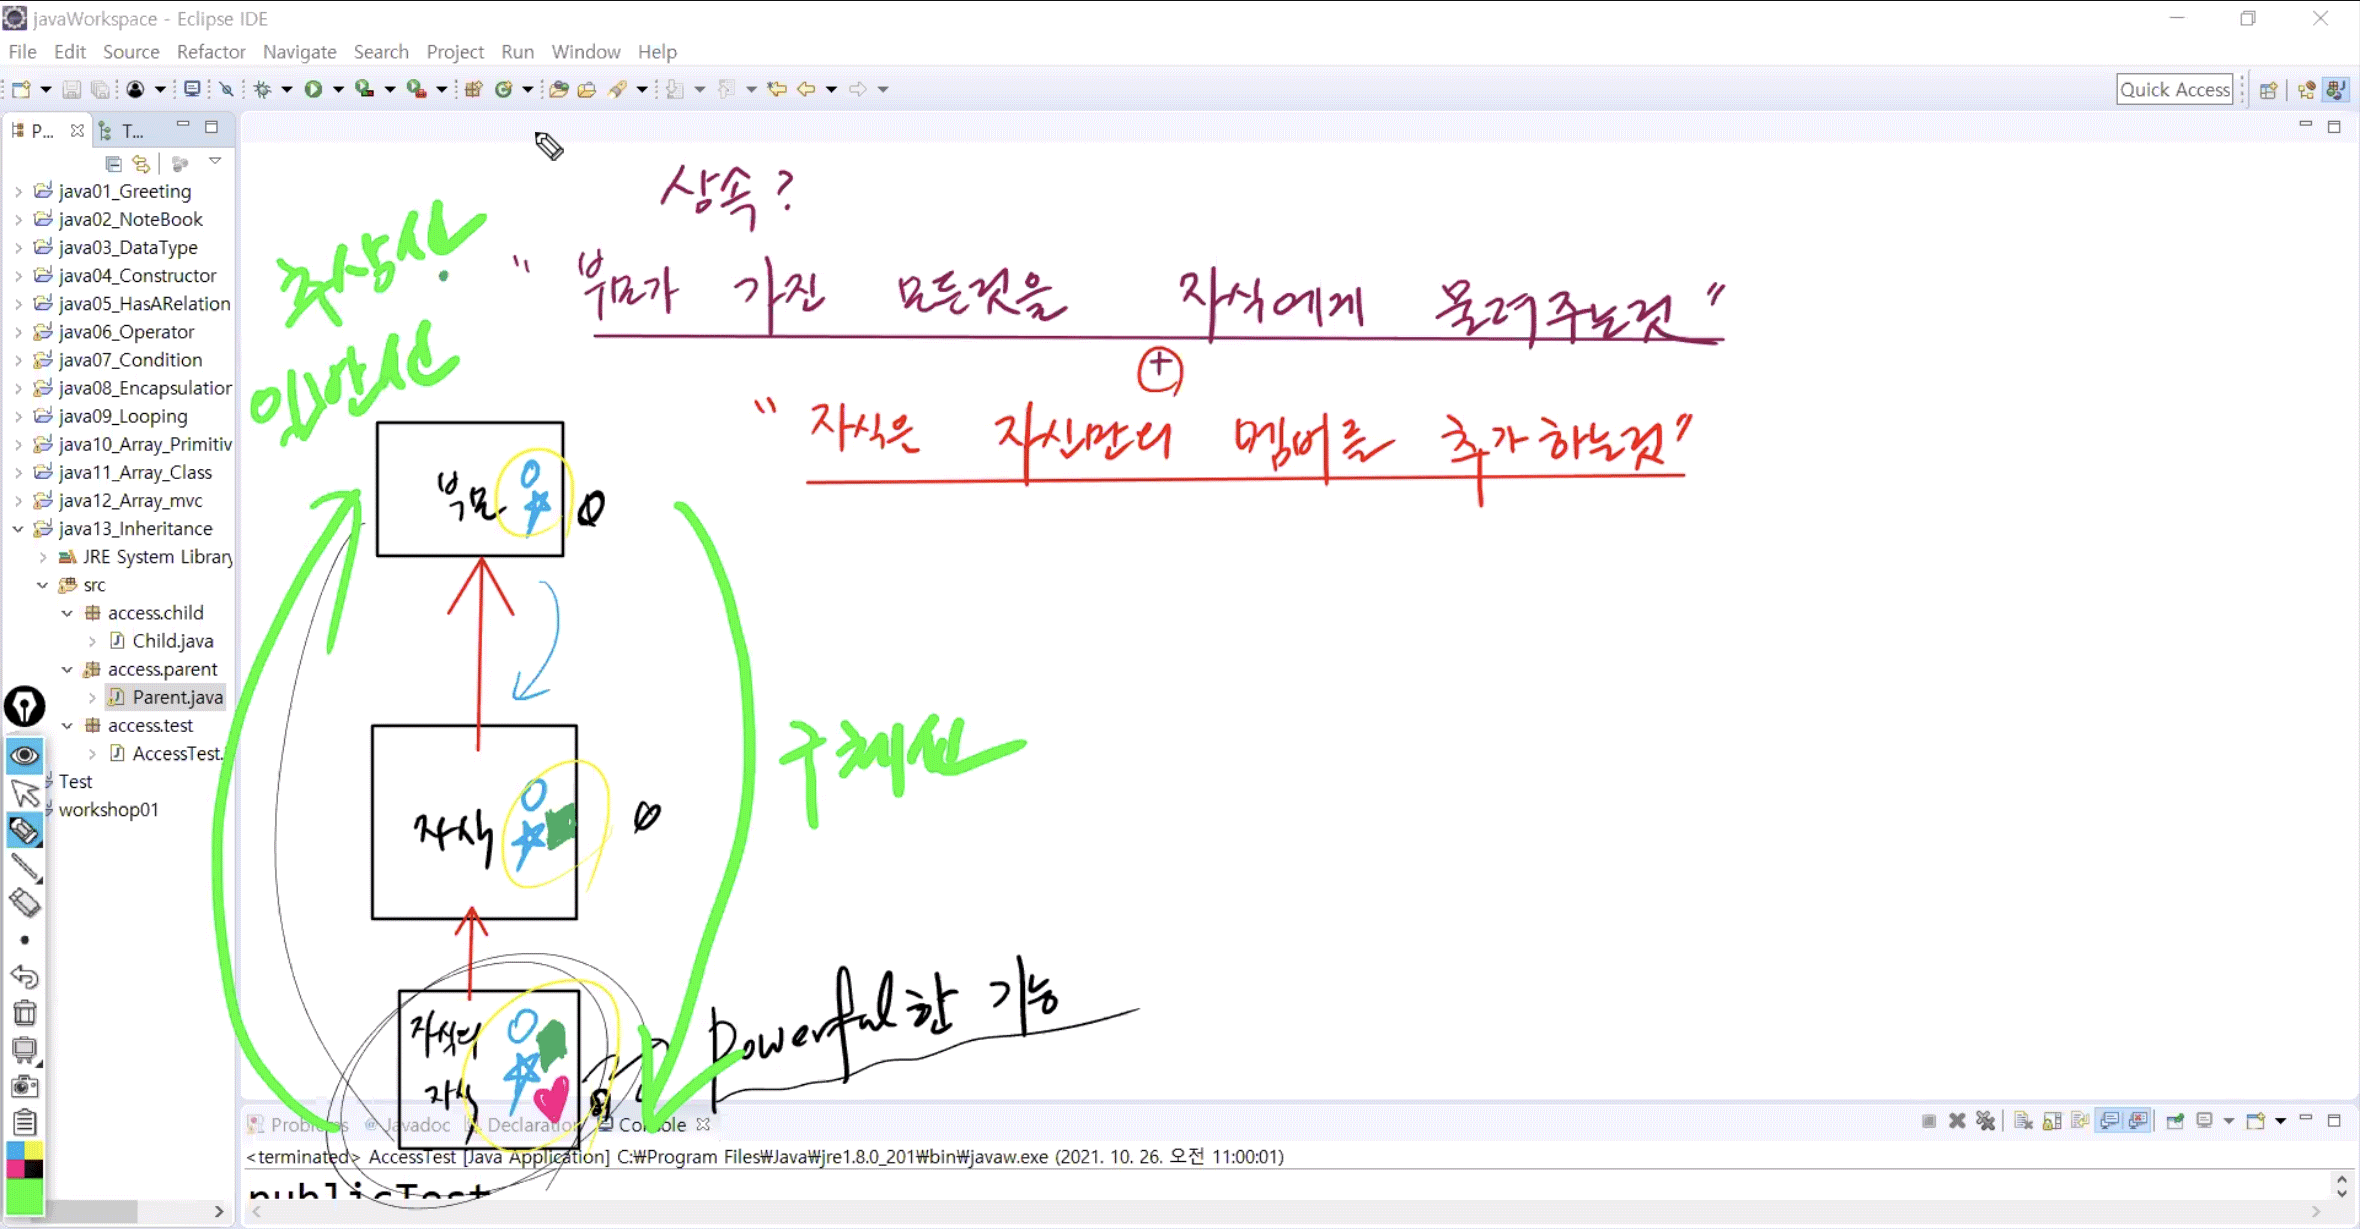 javaWorkspace - Eclipse IDE
File Edit Source Refactor Navigate Search Project Run Window Help
Quick Access
P... T...
java01_Greeting
java02_NoteBook
java03_DataType
java04_Constructor
java05_HasARelation
java06_Operator
java07_Condition
java08_Encapsulation
java09_Looping
java10_Array_Primitiv
java11_Array_Class
java12_Array_mvc
java13_Inheritance
JRE System Library
src
access.child
Child.java
access.parent
Parent.java
access.test
AccessTest.
Test
workshop01
상속?
" 부모가 가진 모든것을 자식에게 물려주는것 "
+
" 자식은 자신만의 멤버를 추가하는것"
추상심
일반심
부모
자식
구체심
자식의
자식
Powerful한 기능
Problems @ Javadoc Declaration Console
<terminated> AccessTest [Java Application] C:₩Program Files₩Java₩jre1.8.0_201₩bin₩javaw.exe (2021. 10. 26. 오전 11:00:01)
publicTest